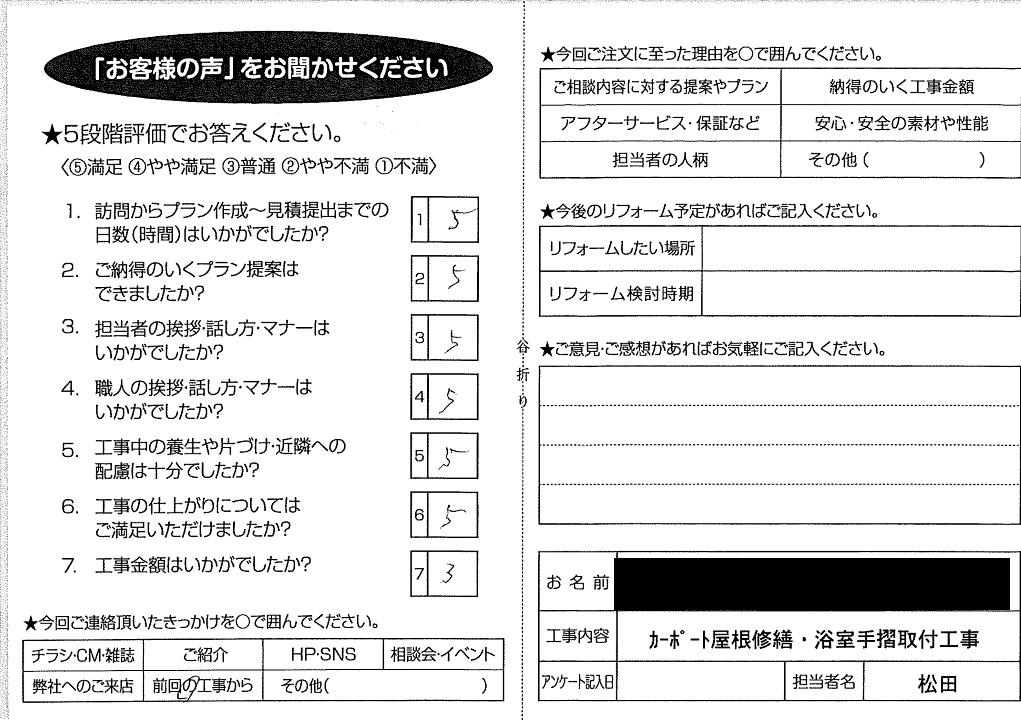 「お客様の声」をお聞かせください
★5段階評価でお答えください。
〈⑤満足 ④やや満足 ③普通 ②やや不満 ①不満〉
1. 訪問からプラン作成～見積提出までの
日数(時間)はいかがでしたか?
1 5
2. ご納得のいくプラン提案は
できましたか?
2 5
3. 担当者の挨拶・話し方・マナーは
いかがでしたか?
3 5
4. 職人の挨拶・話し方・マナーは
いかがでしたか?
4 5
5. 工事中の養生や片づけ・近隣への
配慮は十分でしたか?
5 5
6. 工事の仕上がりについては
ご満足いただけましたか?
6 5
7. 工事金額はいかがでしたか?
7 3
★今回ご連絡頂いたきっかけを○で囲んでください。
チラシ・CM・雑誌 ご紹介 HP・SNS 相談会・イベント
弊社へのご来店 前回の工事から その他( )
谷折り
★今回ご注文に至った理由を○で囲んでください。
ご相談内容に対する提案やプラン 納得のいく工事金額
アフターサービス・保証など 安心・安全の素材や性能
担当者の人柄 その他( )
★今後のリフォーム予定があればご記入ください。
リフォームしたい場所
リフォーム検討時期
★ご意見・ご感想があればお気軽にご記入ください。
お名前
工事内容 ｶｰﾎﾟｰﾄ屋根修繕・浴室手摺取付工事
アンケート記入日 担当者名 松田